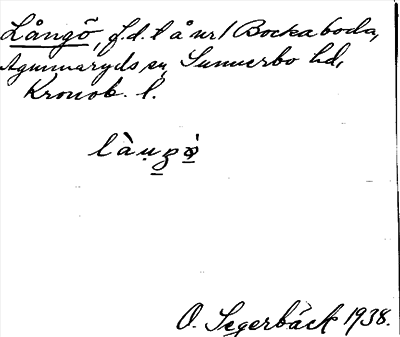 Långö, f.d. l å ur/ Bockaboda,
Agunnaryds sn, Sunnerbo hd,
Kronob. l.
O. Segerbäck 1938.